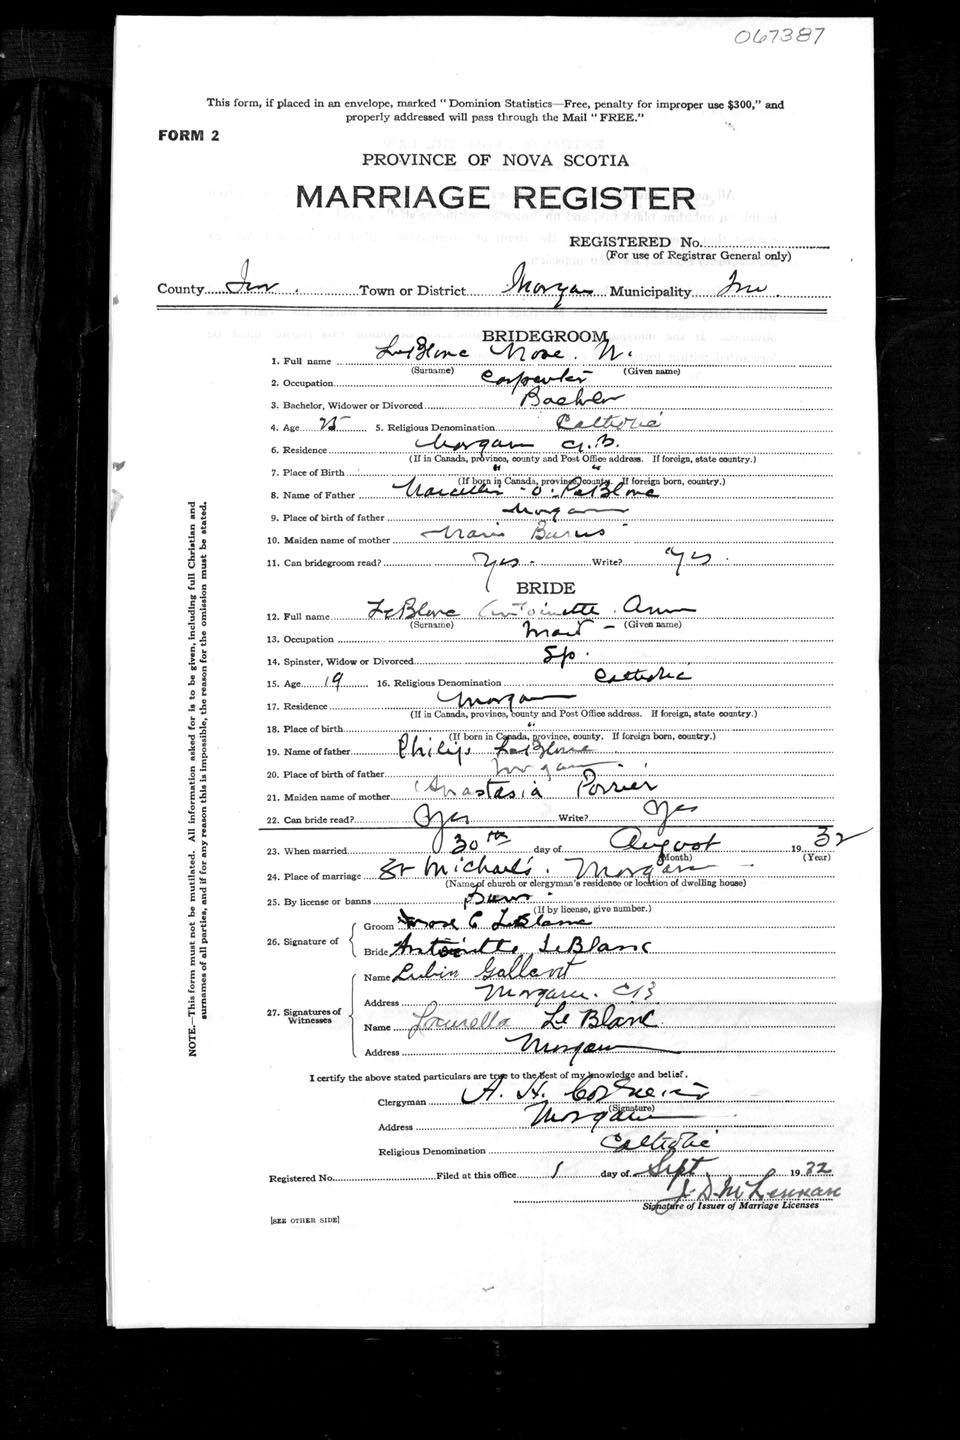 067387
This form, if placed in an envelope, marked "Dominion Statistics—Free, penalty for improper use $300," and
properly addressed will pass through the Mail "FREE."
FORM 2
PROVINCE OF NOVA SCOTIA
MARRIAGE REGISTER
REGISTERED No.
(For use of Registrar General only)
County Inv. Town or District Morgan Municipality Inv.
BRIDEGROOM
1. Full name LeBlanc Mose
(Surname) (Given name)
2. Occupation Carpenter
3. Bachelor, Widower or Divorced Bachelor
4. Age 25 5. Religious Denomination Catholic
6. Residence Morgan C.B.
(If in Canada, province, county and Post Office address. If foreign, state country.)
7. Place of Birth " "
(If born in Canada, province, county. If foreign born, country.)
8. Name of Father LeBlanc
9. Place of birth of father Morgan
10. Maiden name of mother Marie Burns
11. Can bridegroom read? Yes Write? Yes
BRIDE
12. Full name LeBlanc Antoinette Ann
(Surname) (Given name)
13. Occupation Maid
14. Spinster, Widow or Divorced Sp.
15. Age 19 16. Religious Denomination Catholic
17. Residence Morgan
(If in Canada, province, county and Post Office address. If foreign, state country.)
18. Place of birth "
(If born in Canada, province, county. If foreign born, country.)
19. Name of father Philip LeBlanc
20. Place of birth of father Morgan
21. Maiden name of mother Anastasia Poirier
22. Can bride read? Yes Write? Yes
23. When married 30th day of August 1932
(Month) (Year)
24. Place of marriage St Michael's. Morgan
(Name of church or clergyman's residence or location of dwelling house)
25. By license or banns
(If by license, give number.)
26. Signature of
Groom Mose C LeBlanc
Bride Antoinette LeBlanc
27. Signatures of Witnesses
Name Lubin Gallant
Address Morgan. CB
Name Le Blanc
Address Morgan
I certify the above stated particulars are true to the best of my knowledge and belief.
Clergyman A. H. Cormier
(Signature)
Address Morgan
Religious Denomination Catholic
Registered No. Filed at this office 1 day of Sept. 1932
J. D. McLennan
Signature of Issuer of Marriage Licenses
[SEE OTHER SIDE]
NOTE.—This form must not be mutilated. All information asked for is to be given, including full Christian and
surnames of all parties, and if for any reason this is impossible, the reason for the omission must be stated.